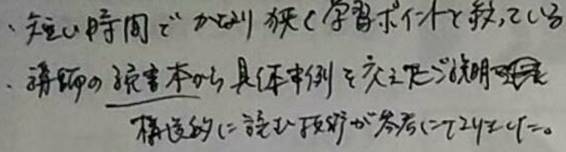 ・短い時間でかなり狭く学習ポイントを絞っている
・講師の読書本から具体事例を交えたご説明
構造的に読む技術が参考になりました。